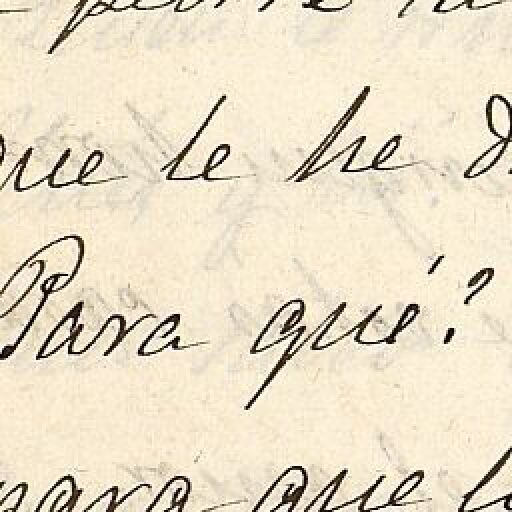 que le he
Para qué?
para que